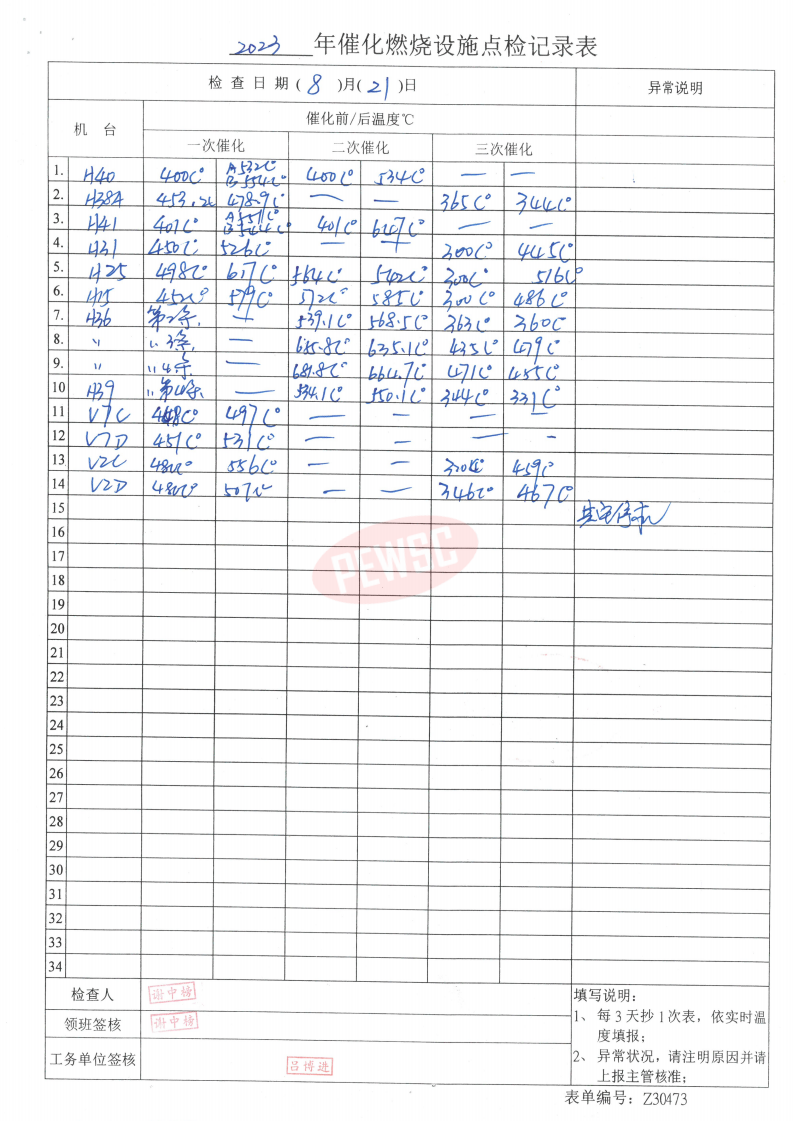 2023 年催化燃烧设施点检记录表
检 查 日 期 ( 8 )月( 21 )日 异常说明
机 台 催化前/后温度℃
一次催化 二次催化 三次催化
1. H40 400C° A 532C° B 554C° 400C° 534C° — —
2. H38A 453.2C 478.9C° — — 365C° 344C°
3. H41 401C° A 551C° B 544C° 401C° 647C° — —
4. H31 450C° 526C° — — 300C° 445C°
5. H25 498C° 617C° 564C° 542C° 300C° 516C°
6. H15 452C° 579C° 572C° 585C° 300C° 486C°
7. H36 第2条. — 539.1C° 568.5C° 363C° 360C°
8. 〃 〃3条. — 635.1C° 435C° 479C°
9. 〃 〃4条 — 681.8C° 664.7C° 471C° 455C°
10 H39 〃第4条. — 534.1C° 550.1C° 344C° 331C°
11 V7C 448C° 497C° — — — —
12 V7D 451C° 531C° — — — —
13 V2C 480C° 556C° — — 320C° 459C°
14 V2D 480C° 507C° — — 346C° 467C°
15 其它停机
16
17
18
19
20
21
22
23
24
25
26
27
28
29
30
31
32
33
34
PEWSC
检查人 谢中榜
领班签核 谢中榜
工务单位签核 吕博进
填写说明：
1、 每 3 天抄 1 次表，依实时温
度填报；
2、 异常状况，请注明原因并请
上报主管核准；
表单编号：Z30473